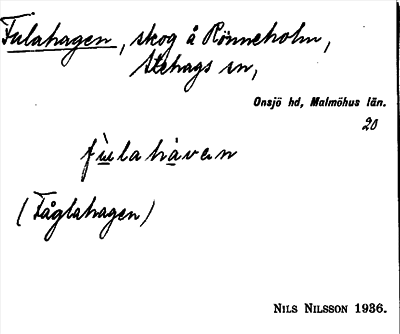 Fulahagen, skog å Rönneholm,
Stehags sn,
Onsjö hd, Malmöhus län.
20
fùlahàven
(Fåglahagen)
NILS NILSSON 1936.